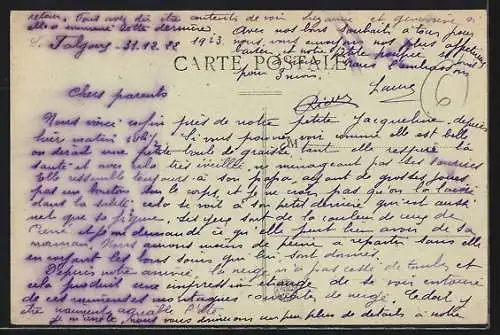 retour. Vous avez dû être contents de voir Suzanne et Geneviève si
elle a emmené cette dernière
Avec nos bons souhaits à tous pour
Falgoux 31.12.22 1923. nous vous envoyons nos plus affectueux
baisers et notre petite poupée
CARTE POSTALE
pour 3 mois.
Chers parents
Nous voici enfin près de notre petite Jacqueline, depuis
hier matin Si vous pouvez voir comme elle est belle
on dirait une petite boule de graisse, tant elle respire la
santé et avec cela très éveillée, ne ménageant pas les sourires
Elle ressemble toujours à son papa, ayant de grosses joues
pas un bouton sur le corps, et je ne crois pas qu'on la laisse
dans la saleté, cela se voit à son petit derrière qui est aussi
net que sa figure. Ses yeux sont de la couleur de ceux de
et je me demande ce qu'elle peut bien avoir de sa
maman. Nous aurons moins de peine à repartir sans elle
en voyant les bons soins qui lui sont donnés.
Depuis notre arrivée la neige n'a pas cessé de tomber et
cela produit une impression étrange de se voir entouré
de ces immenses montagnes de neige. Ce doit
être vraiment agréable l'été
je m'arrête, nous vous donnerons un peu plus de détails à notre